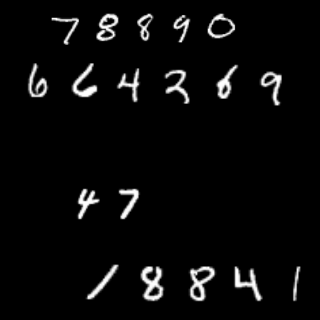 78890
664269
47
18841